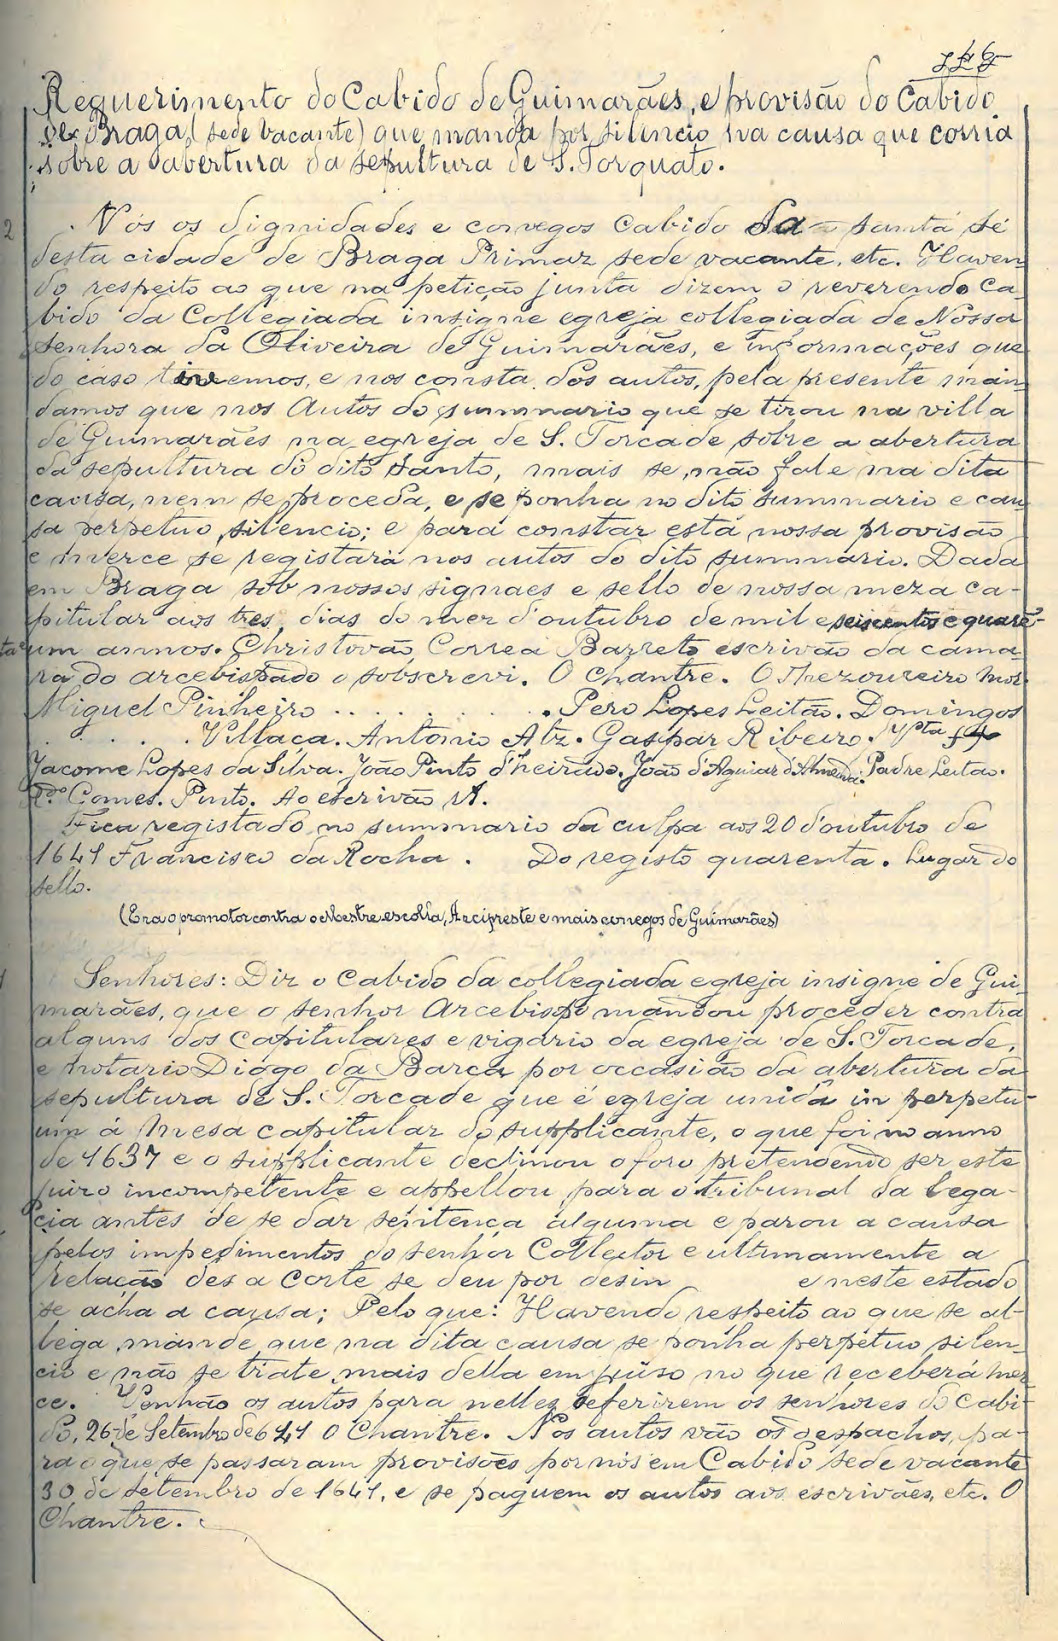 Requerimento do Cabido de Guimarães, e provisão do Cabido
de Braga, (sede vacante) que manda por silencio na causa que corria
sobre a abertura da sepultura de S. Torquato.
2 Nós os dignidades e conegos Cabido da santa sé
desta cidade de Braga Primaz sede vacante, etc. Haven-
do respeito ao que na petição junta dizem o reverendo Ca-
bido da Collegiada insigne egreja collegiada de Nossa
Senhora da Oliveira de Guimarães, e informações que
do caso tivemos, e nos consta dos autos, pela presente man-
damos que nos Autos do summario que se tirou na villa
de Guimarães na egreja de S. Torcade sobre a abertura
da sepultura do dito Santo, mais se não fale na dita
causa, nem se proceda, e se ponha no dito summario e cau-
sa perpetuo silencio; e para constar esta nossa provisão
e merce se registará nos autos do dito summario. Dada
em Braga sob nossos signaes e sello de nossa meza ca-
pitular aos tres dias do mez d'outubro de mil e seiscentos e quare-
ta e um annos. Christovão Correa Barreto escrivão da cama-
ra do arcebispado o sobscrevi. O Chantre. O Thezoureiro Mor.
Miguel Pinheiro . . . . . . . . Pero Lopes Leitão. Domingos
. . . . . Villaça. Antonio Alz. Gaspar Ribeiro.
Jacome Lopes da Silva. João Pinto João d'Aguiar d'Almeida. Padre Leitão.
Gomes. Pinto. Ao escrivão
Fica registado no summario da culpa aos 20 d'outubro de
1641 Francisco da Rocha. Do registo quarenta. Lugar do
sello.
(Era o promotor contra o Mestre escolla, Arcipreste e mais conegos de Guimarães)
1 Senhores: Diz o Cabido da collegiada egreja insigne de Gui-
marães, que o senhor Arcebispo mandou proceder contra
alguns dos Capitulares e vigario da egreja de S. Torcade,
e notario Diogo da Barca por occasião da abertura da
sepultura de S. Torcade que é egreja unida in perpetu-
um á Mesa capitular do supplicante, o que foi no anno
de 1637 e o supplicante declinou o foro pretendendo ser este
juizo incompetente e appellou para o tribunal da lega-
cia antes de se dar sentença alguma e parou a causa
pelos impedimentos do senhor Colleitor e ultimamente a
relação des a corte se deu por desin e neste estado
se acha a causa; Pelo que: Havendo respeito ao que se al-
lega mande que na dita causa se ponha perpétuo silen-
cio e não se trate mais della em juizo no que receberá mer-
ce. Venhão os autos para nelles referirem os senhores do Cabi-
do, 26 de Setembro de 641 O Chantre. Nos autos vão os despachos, pa-
ra o que se passaram provisões por nós em Cabido sede vacante
30 de Setembro de 1641, e se paguem os autos aos escrivães, etc. O
Chantre.